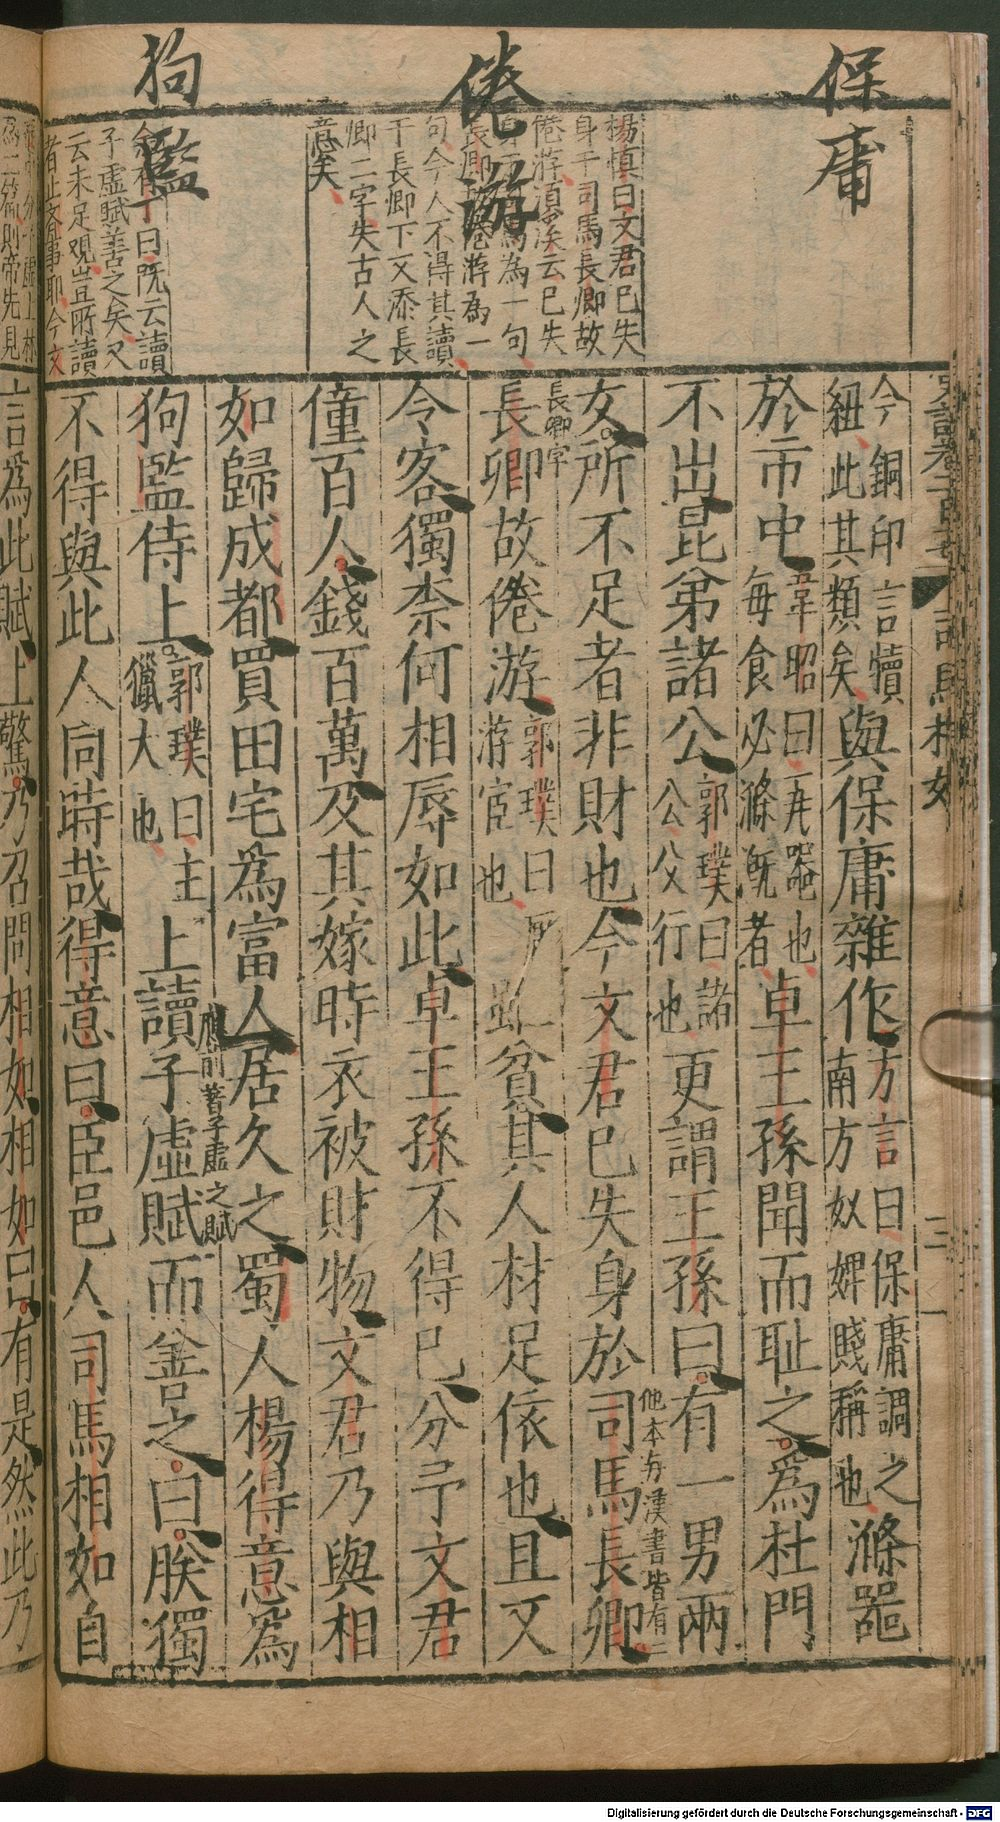 保庸
倦游
狗監
楊慎曰文君已失
身于司馬長卿故
倦游須溪云已失
長卿故倦游為一
句今人不得其讀
于長卿下又添長
卿二字失古人之
意矣
曰既云讀
子虛賦善之矣又
云未足觀豈所讀
者止客事耶今文
今銅印言犢
紐此其類矣
與保庸雜作
方言曰保庸謂之
南方奴婢賤稱也
滌器
於市中
韋昭曰瓦器也
每食必滌溉者
卓王孫聞而恥之為杜門
不出昆弟諸公
郭璞曰諸
公公父行也
更謂王孫曰有一男兩
他本与漢書皆有二
長卿字
女所不足者非財也今文君已失身於司馬長卿
長卿故倦游
郭璞曰厭
游宦也
雖貧其人材足依也且又
令客獨柰何相辱如此卓王孫不得已分予文君
僮百人錢百萬及其嫁時衣被財物文君乃與相
如歸成都買田宅為富人居久之蜀人楊得意為
狗監侍上
郭璞曰主
獵犬也
上讀子虛賦而善之曰朕獨
應前著子虛之賦
不得與此人同時哉得意曰臣邑人司馬相如自
言為此賦上驚乃召問相如相如曰有是然此乃
三
Digitalisierung gefördert durch die Deutsche Forschungsgemeinschaft - DFG